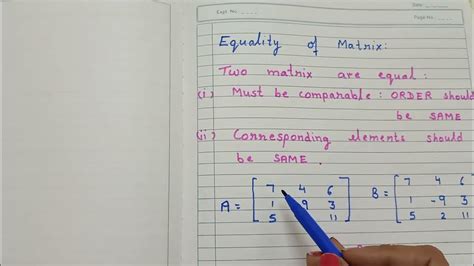 Expt. No.
Date
Page No.
Equality of Matrix:
Two matrix are equal:
(i) Must be comparable: ORDER should
be SAME
(ii) Corresponding elements should
be SAME.
7 4 6 7 4 6
A = 1 9 3 B = 1 -9 3
5 11 5 2 11